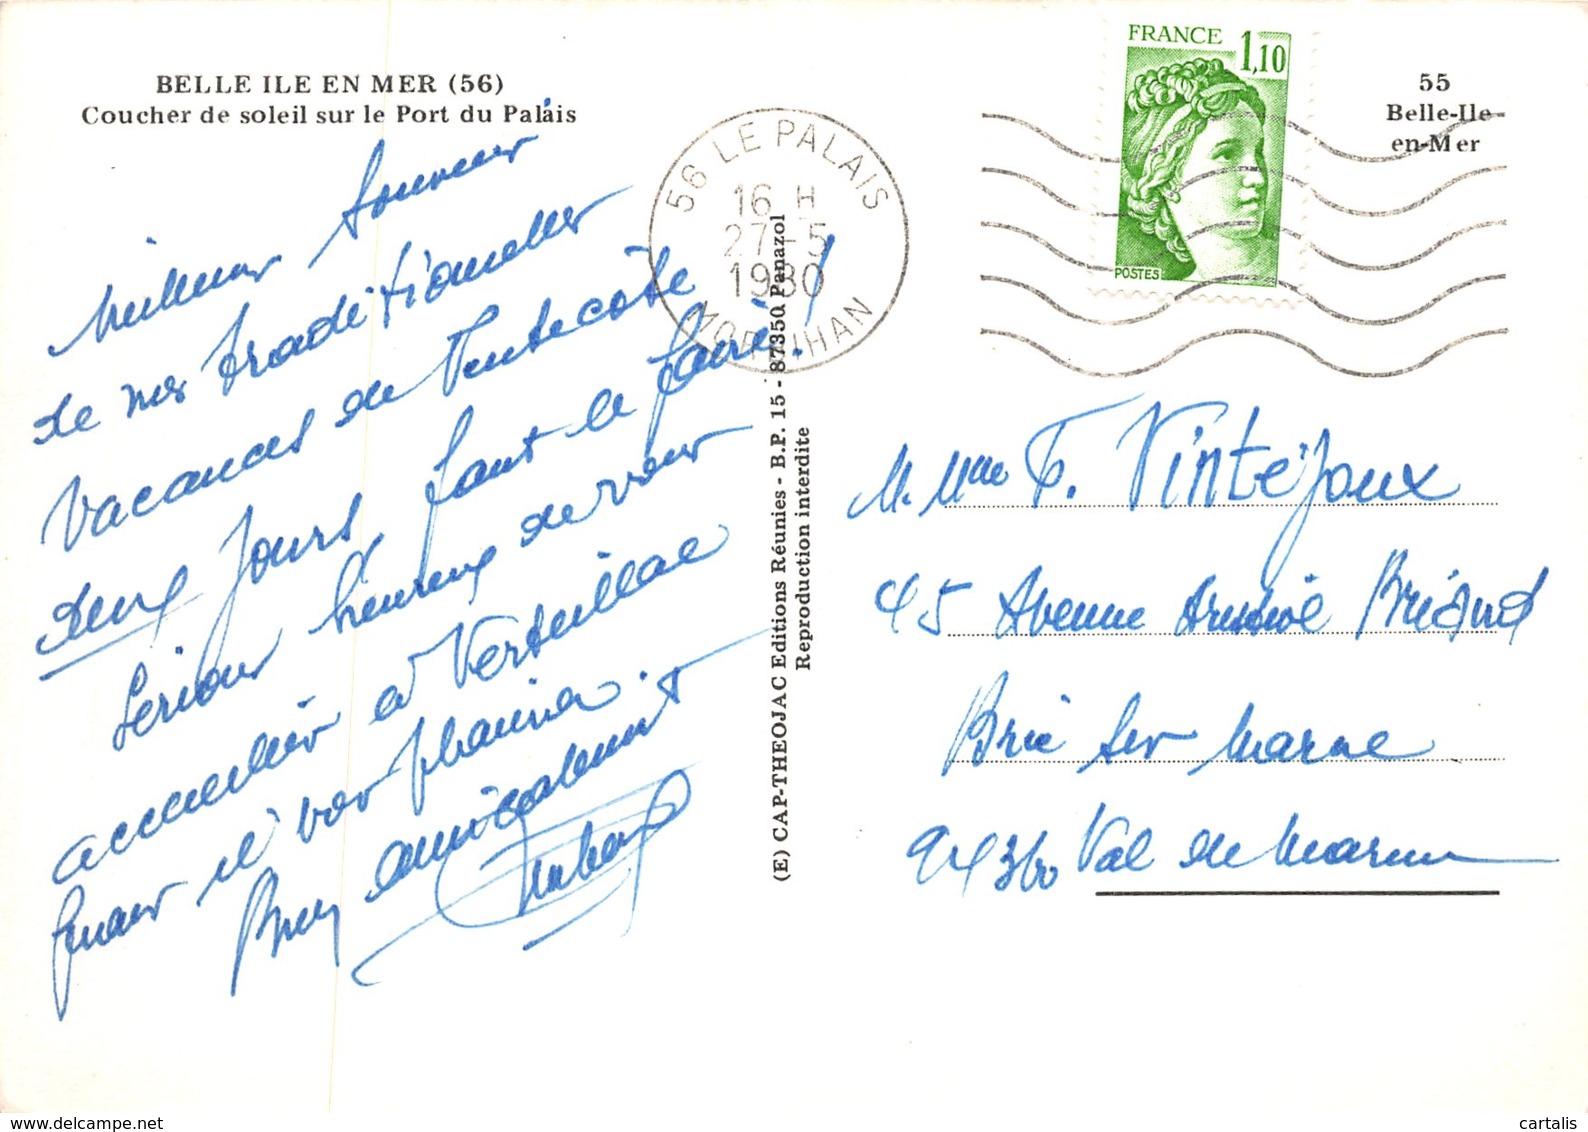 BELLE ILE EN MER (56)
Coucher de soleil sur le Port du Palais
Meilleur Souvenir
de nos traditionnelles
vacances de Pentecôte
deux jours faut le faire !
Serions heureux de vous
accueillir à Verteillac
Bien amicalement
56 LE PALAIS
16 H
27-5
1980
MORBIHAN
(E) CAP-THEOJAC Editions Réunies - B.P. 15 - 87350 Panazol
Reproduction interdite
FRANCE 1,10
POSTES
55
Belle-Ile
en-Mer
M. Mme F. Vintéjoux
45 Avenue Aristide Briand
Brie sur Marne
94360 Val de Marne
www.cartalis.com
cartalis